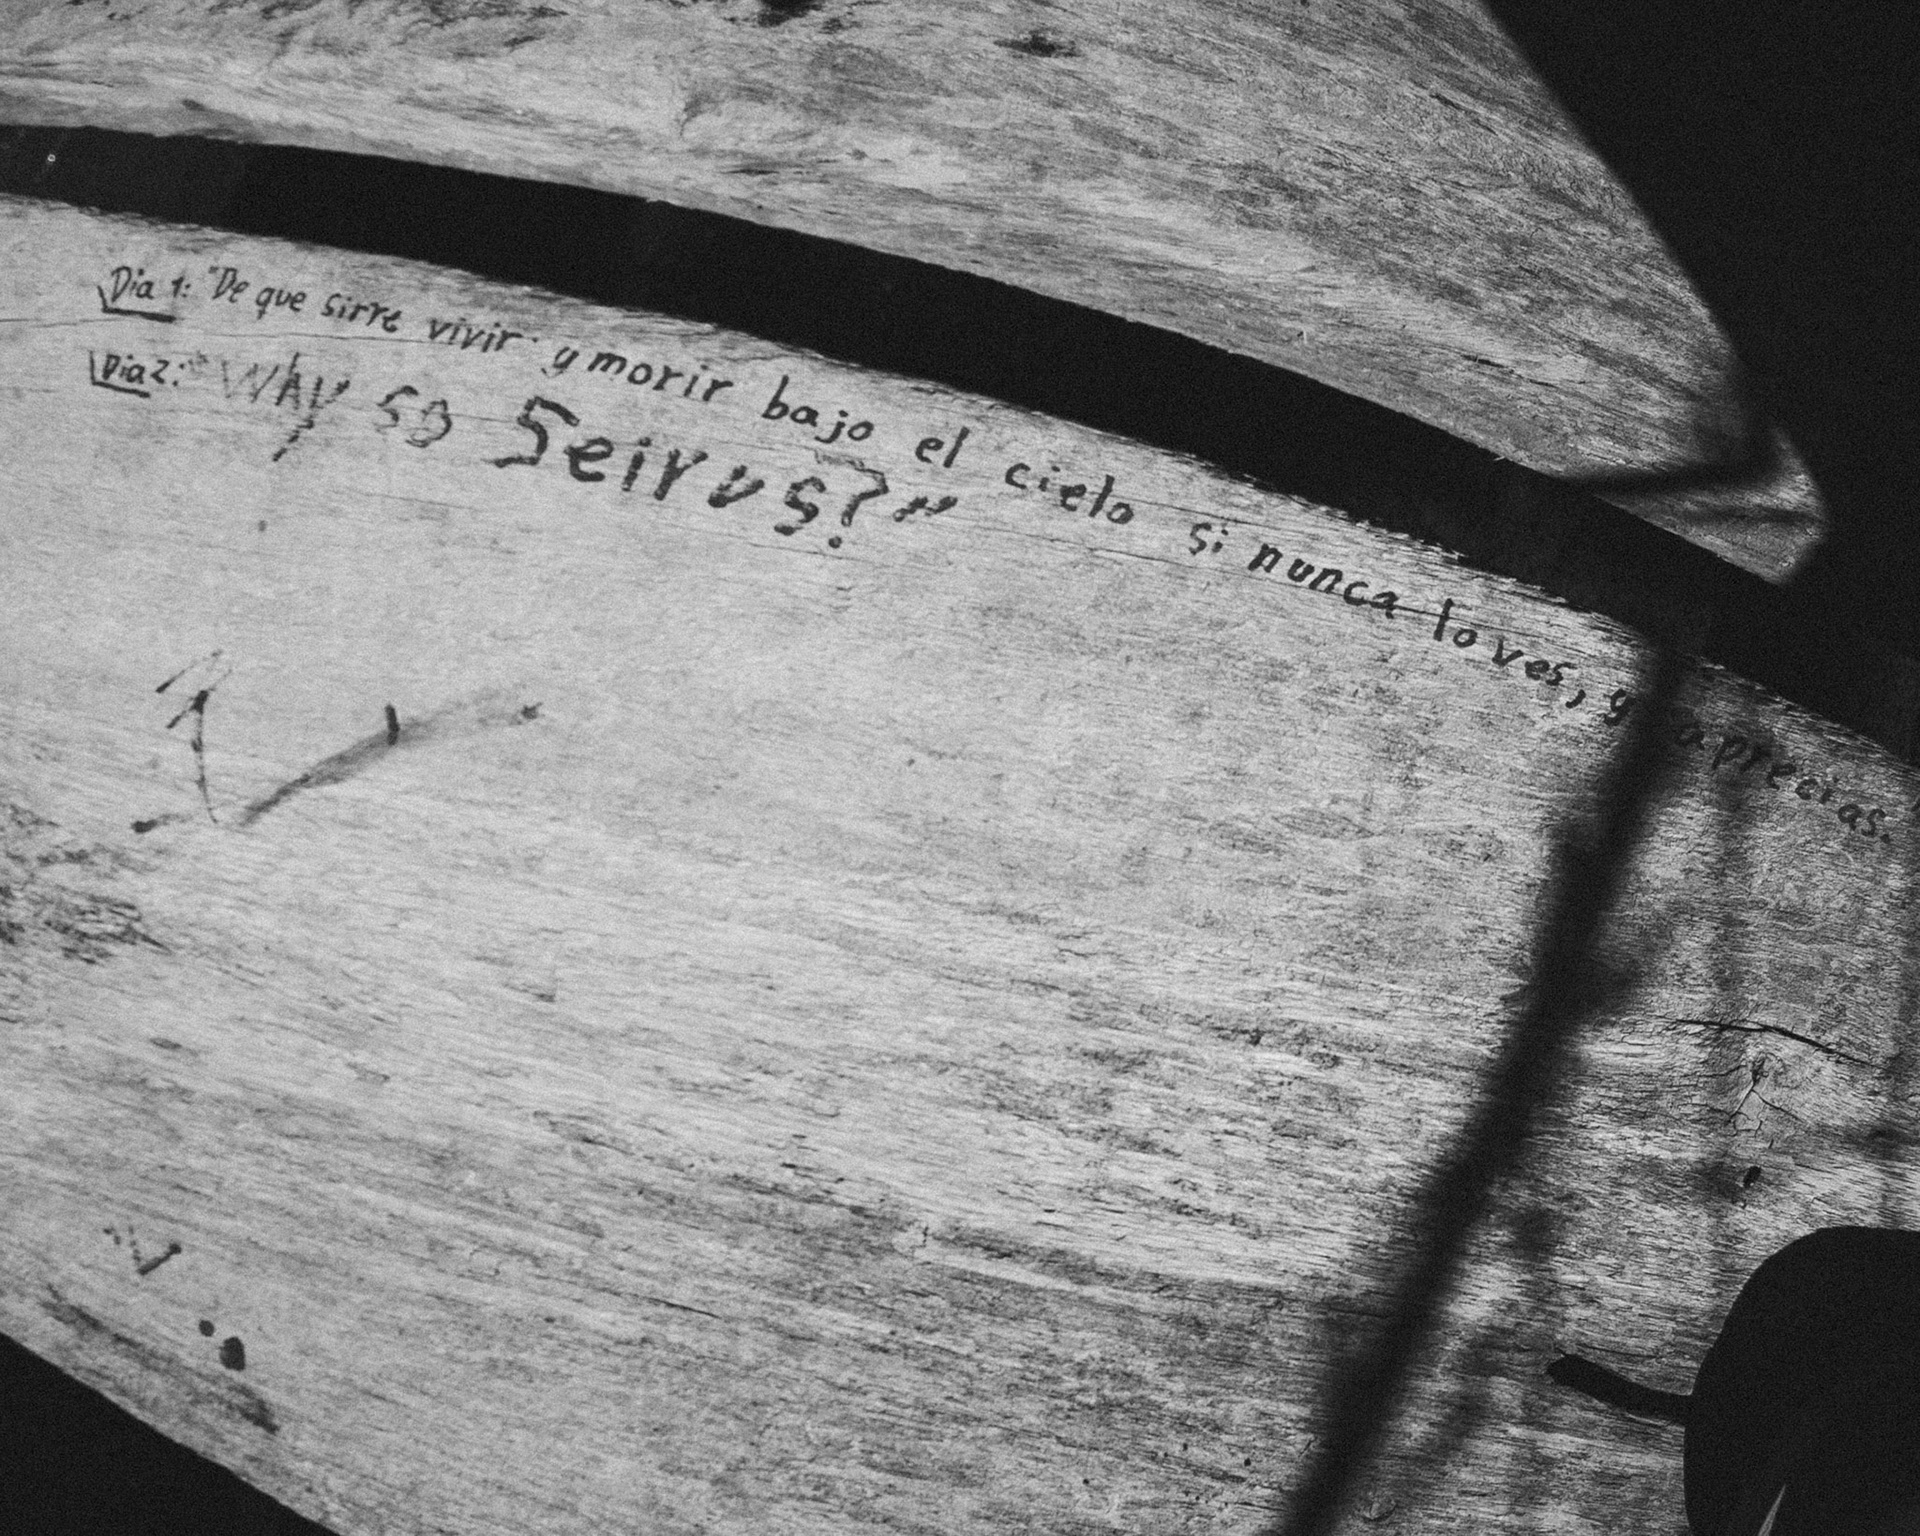 Dia 1: "De que sirve vivir y morir bajo el cielo si nunca lo ves, y aprecias.
Dia 2: "WHY so Seirus?"